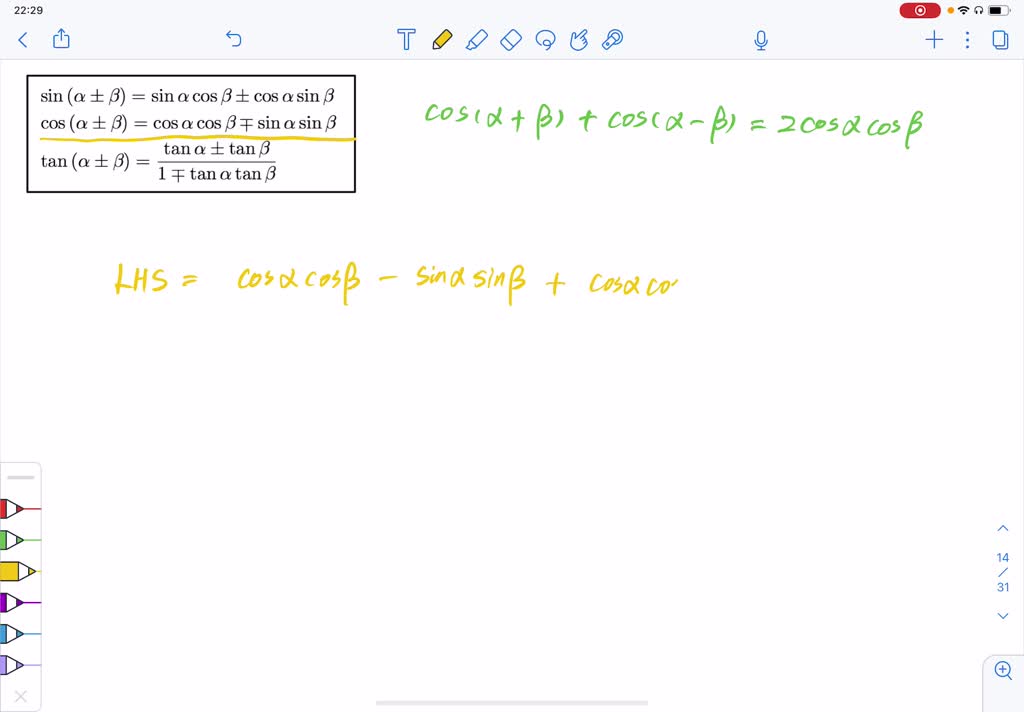 22:29
sin (α ± β) = sin α cos β ± cos α sin β
cos (α ± β) = cos α cos β ∓ sin α sin β
tan (α ± β) = (tan α ± tan β) / (1 ∓ tan α tan β)
cos(α + β) + cos(α - β) = 2cosα cosβ
LHS = cosα cosβ - sinα sinβ + cosα co
T
14
/
31